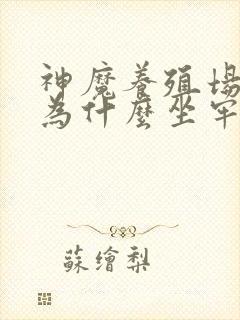 神魔養殖場
為什麼坐牢
蘇繪梨